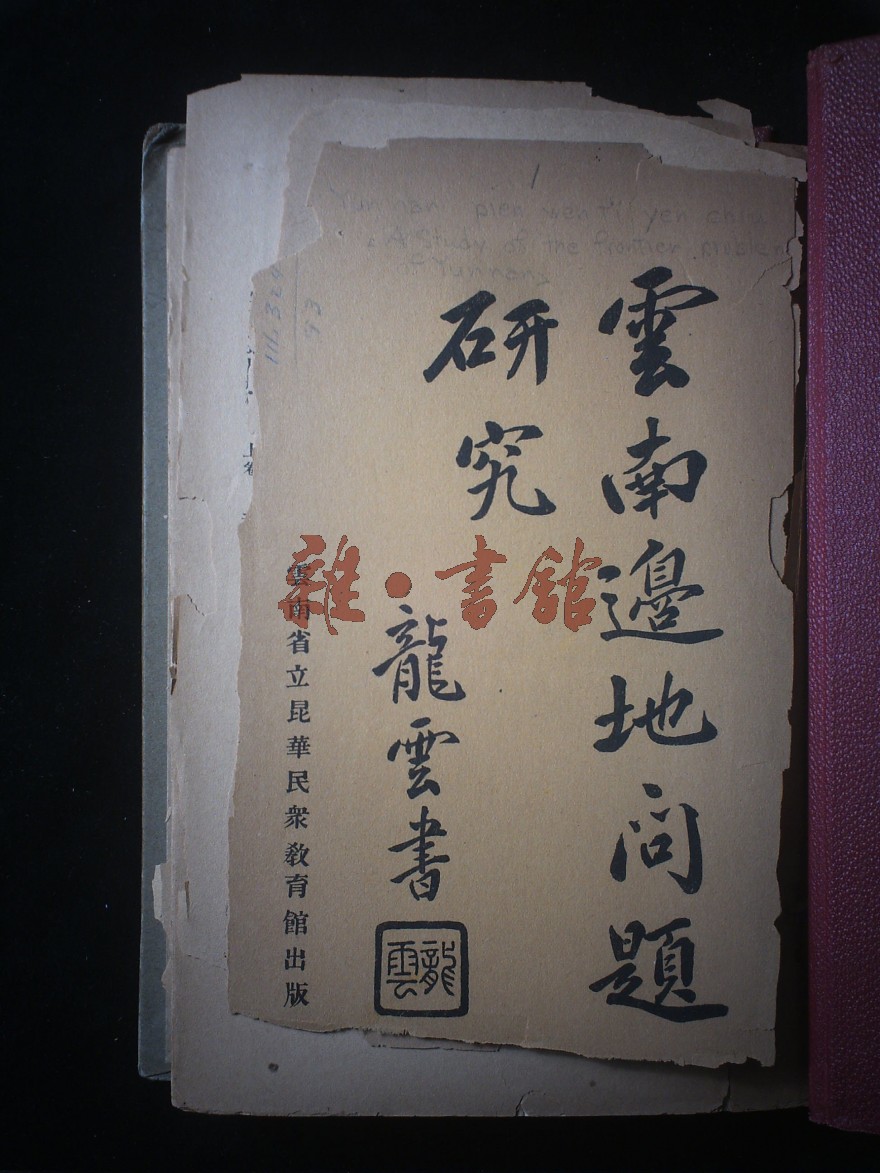 雲南邊地问題
研究
龍雲書
龍雲
雲南省立昆華民衆敎育館出版
雜·書館
Yunnan pien wen t'i yen chiu
A Study of the frontier problem
of Yunnan
上卷